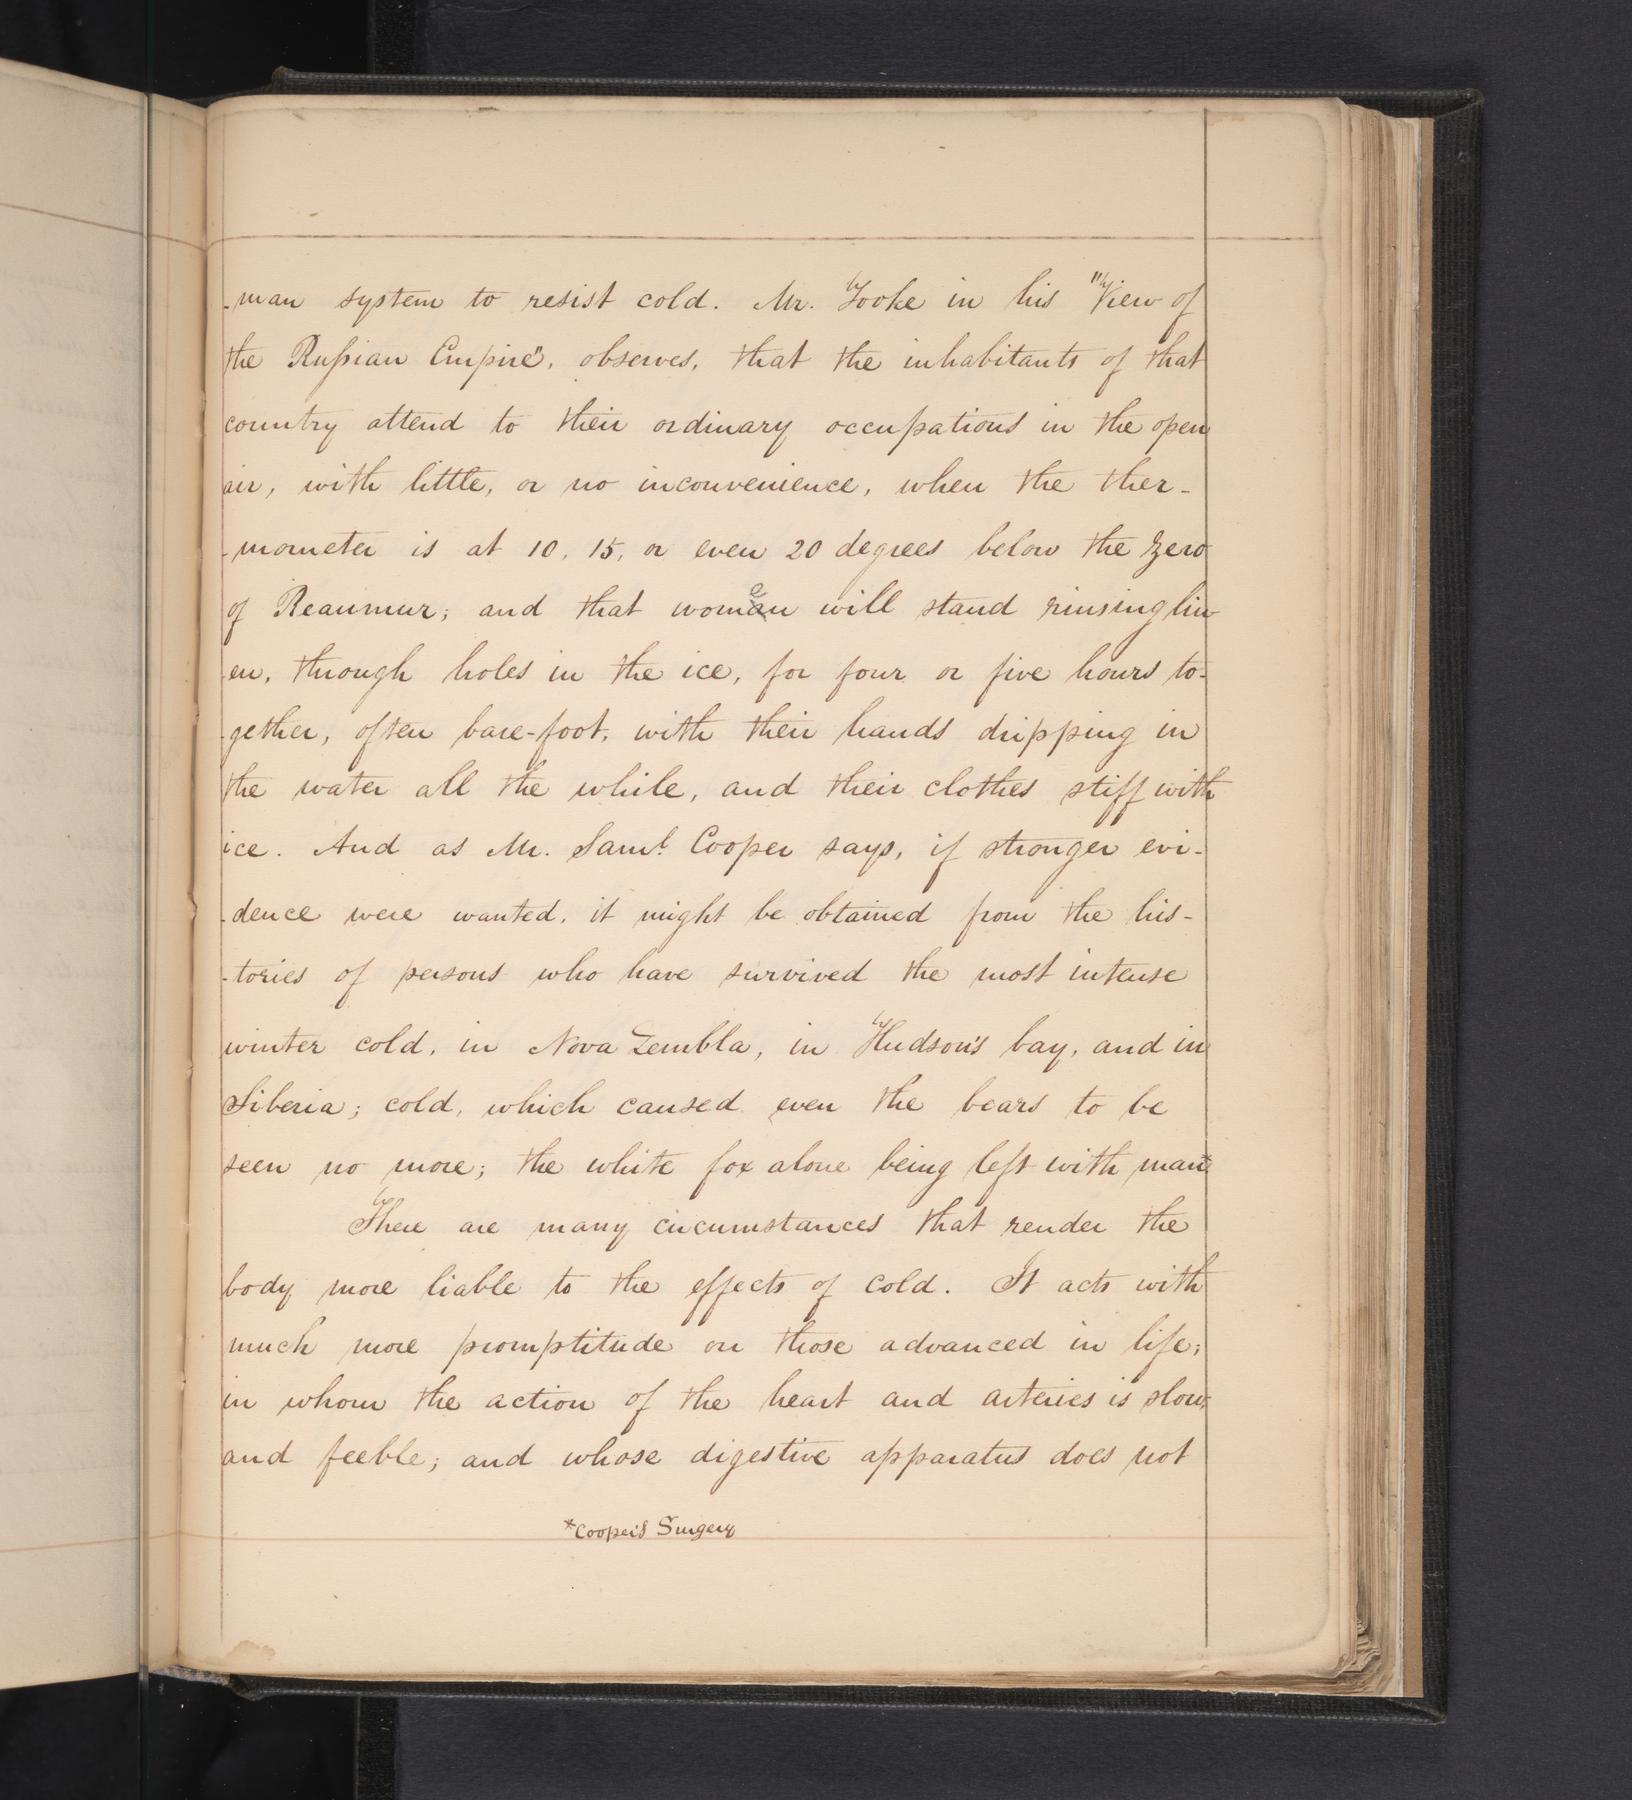 -man system to resist cold. Mr. Tooke in his "View of
the Russian Empire", observes, that the inhabitants of that
country attend to their ordinary occupations in the open
air, with little, or no inconvenience, when the ther-
-mometer is at 10, 15, or even 20 degrees below the zero
of Reaumur; and that women will stand rinsing lin-
en, through holes in the ice, for four or five hours to-
-gether, often bare-foot, with their hands dripping in
the water all the while, and their clothes stiff with
ice. And as Mr. Saml. Cooper says, if stronger evi-
-dence were wanted, it might be obtained from the his-
-tories of persons who have survived the most intense
winter cold, in Nova Zembla, in Hudson's bay, and in
Siberia; cold, which caused even the bears to be
seen no more; the white fox alone being left with man*
There are many circumstances that render the
body more liable to the effects of cold. It acts with
much more promptitude on those advanced in life;
in whom the action of the heart and arteries is slow,
and feeble; and whose digestive apparatus does not
*Cooper's Surgery